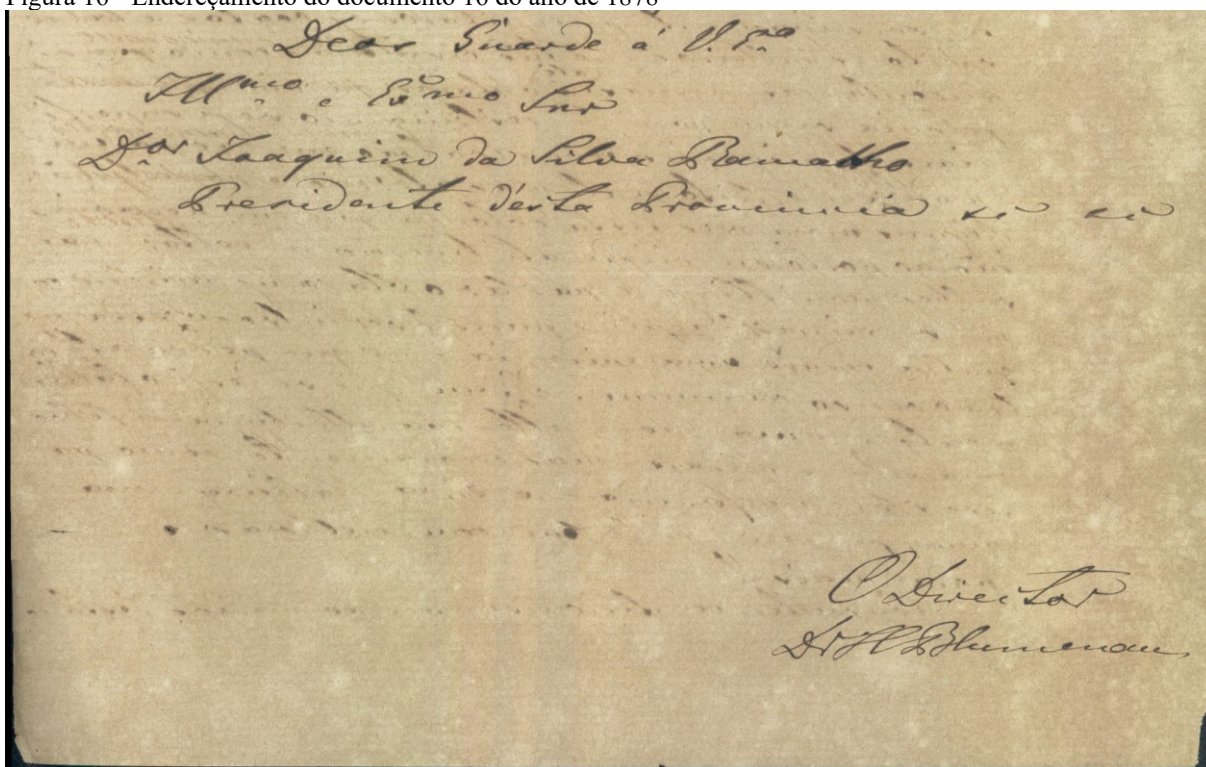 Figura 16 - Endereçamento do documento 16 do ano de 1878
Deos Guarde á V. Exª
Illmo e Exmo Snr
Dor Joaquim da Silva Ramalho
Presidente désta Provincia
O Director
Dr H Blumenau